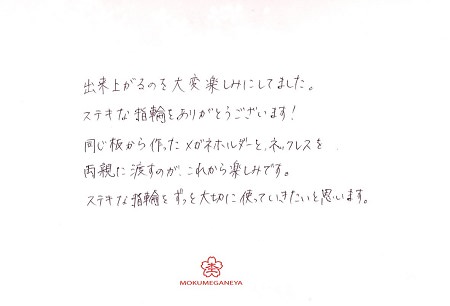 出来上がるのを大変楽しみにしてました。
ステキな指輪をありがとうございます！
同じ板から作ったメガネホルダーと、ネックレスを
両親に渡すのが、これから楽しみです。
ステキな指輪をずっと大切に使っていきたいと思います。
杢
MOKUMEGANEYA